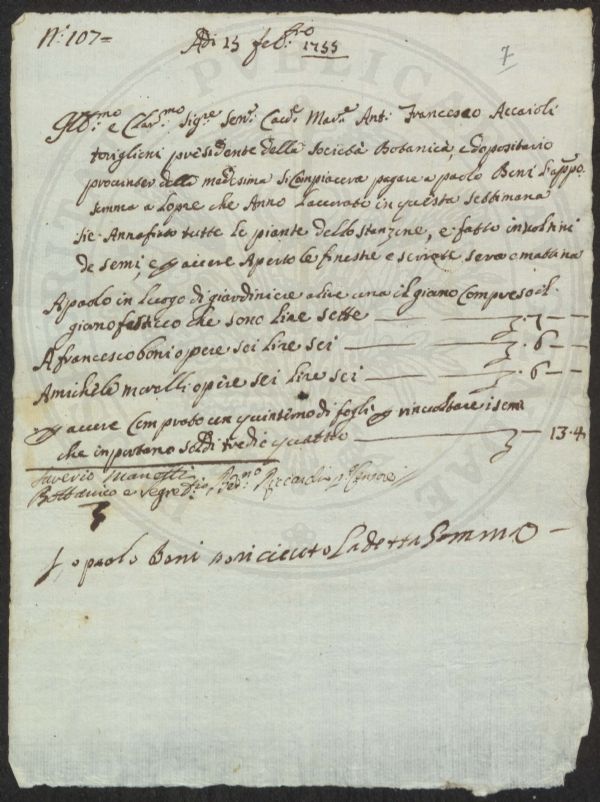 N.° 107=
7
Adi 15 feb.ro 1755
Ill.mo e Clar.mo Sig.re Sen.re Cav.re Mar.e Ant. Francesco Acciaioli
toriglioni presidente della Società Botanica, e depositario
della medesima Si Compiacerà pagare a paolo Boni l'app.
somma a l'opre che Anno Lauorato in questa settimana
Annafiato tutte le piante dello stanzine, e fatto involtini
de semi, e p auere Aperto le finestre e serrate sera e mattina
A paolo in luogo di giardiniere a lire una il giorno Compreso il
giorno festiuo che sono lire sette — 7 —
A francesco boni opere sei lire sei — 6 —
A michele morelli opere sei lire sei — 6 —
p auere Comprato un quintерno di fogli p rinvoltare i semi
che inportano soldi tredici e quattro — 13.4
Saverio Manetti
Bottanico e Segret.rio
Io paolo Boni o riceuto La detta Somma —